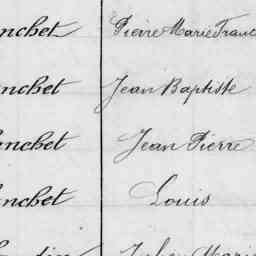 nchet Pierre Marie Franc
nchet Jean Baptiste
nchet Jean Pierre
nchet Louis